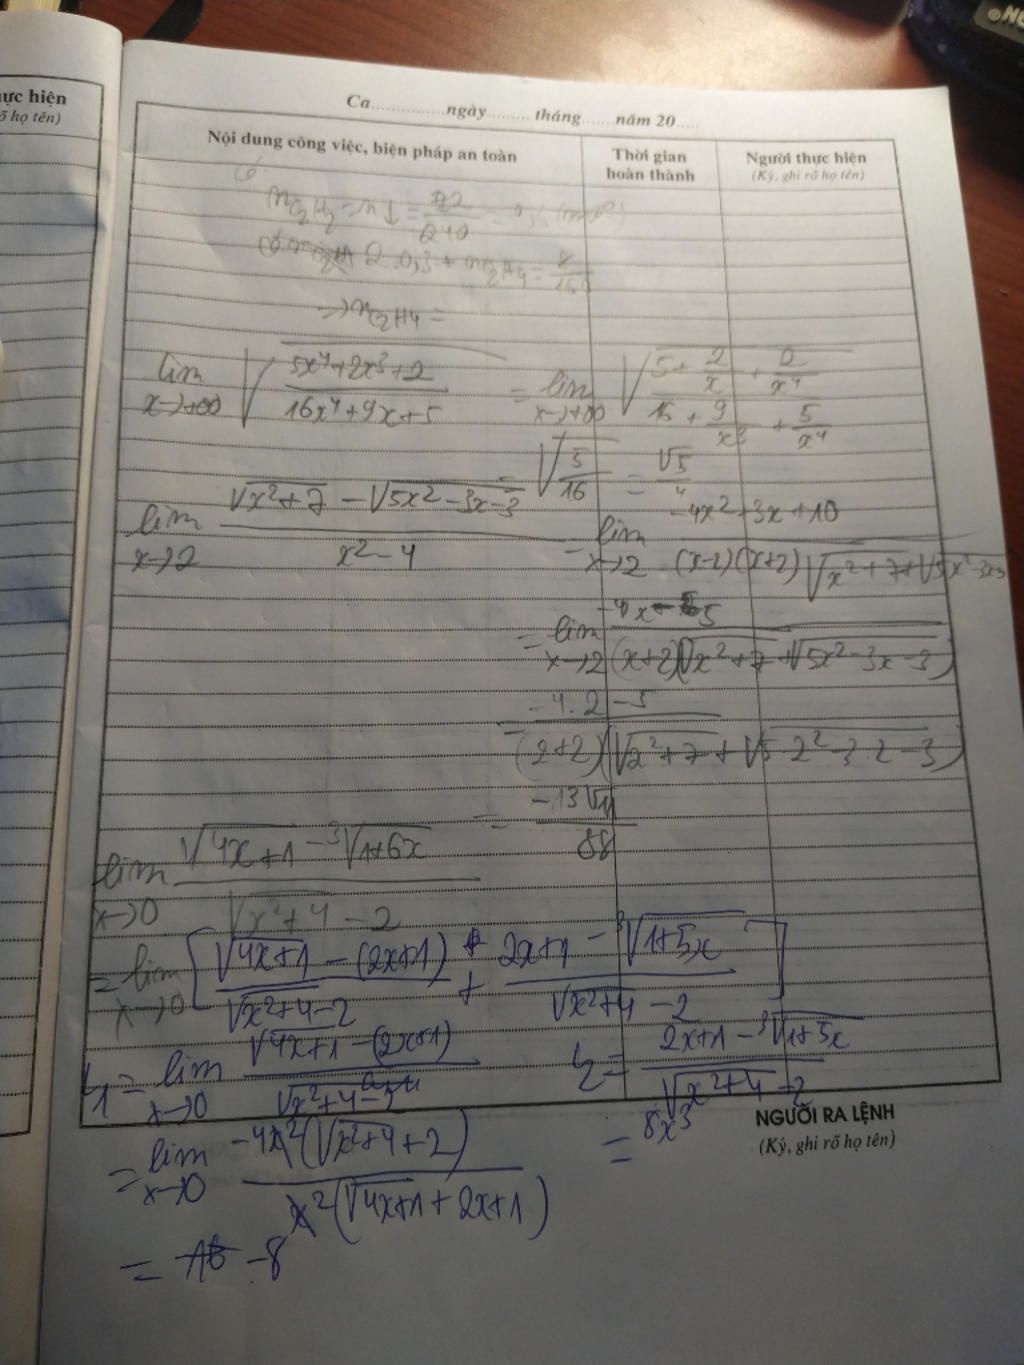 ực hiện
õ họ tên)
Ca..............ngày......... tháng.......năm 20.....
Nội dung công việc, biện pháp an toàn
Thời gian hoàn thành
Người thực hiện
(Ký, ghi rõ họ tên)
→ nC2H4 =
lim x→+∞ √((5x⁴+2x³+2)/(16x⁴+9x+5)) = lim x→+∞ √((5+2/x+2/x⁴)/(15+9/x³+5/x⁴))
= √(5/16) = √5/4
lim x→2 (√(x²+7) − √(5x²−3x−3))/(x²−4) = lim x→2 (−4x²+3x+10)/((x−2)(x+2)√(x²+7)+√(5x²−3x−3)
= lim x→2 (−4x−5)/((x+2)(√(x²+7)+√(5x²−3x−3)))
= (−4.2−5)/((2+2)(√(2²+7)+√(5·2²−3.2−3)))
= −13√11/88
lim x→0 (√(4x+1) − ³√(1+6x))/(√(x²+4) − 2)
= lim x→0 [(√(4x+1) − (2x+1))/(√(x²+4)−2) + (2x+1 − ³√(1+5x))/(√(x²+4) − 2)]
L1 = lim x→0 (√(4x+1) − (2x+1))/(√(x²+4)−2)
L2 = (2x+1 − ³√(1+5x))/(√(x²+4)−2)
NGƯỜI RA LỆNH
(Ký, ghi rõ họ tên)
= lim x→0 (−4x²(√(x²+4)+2))/(x²(√(4x+1)+2x+1))
= 8x³
= −8